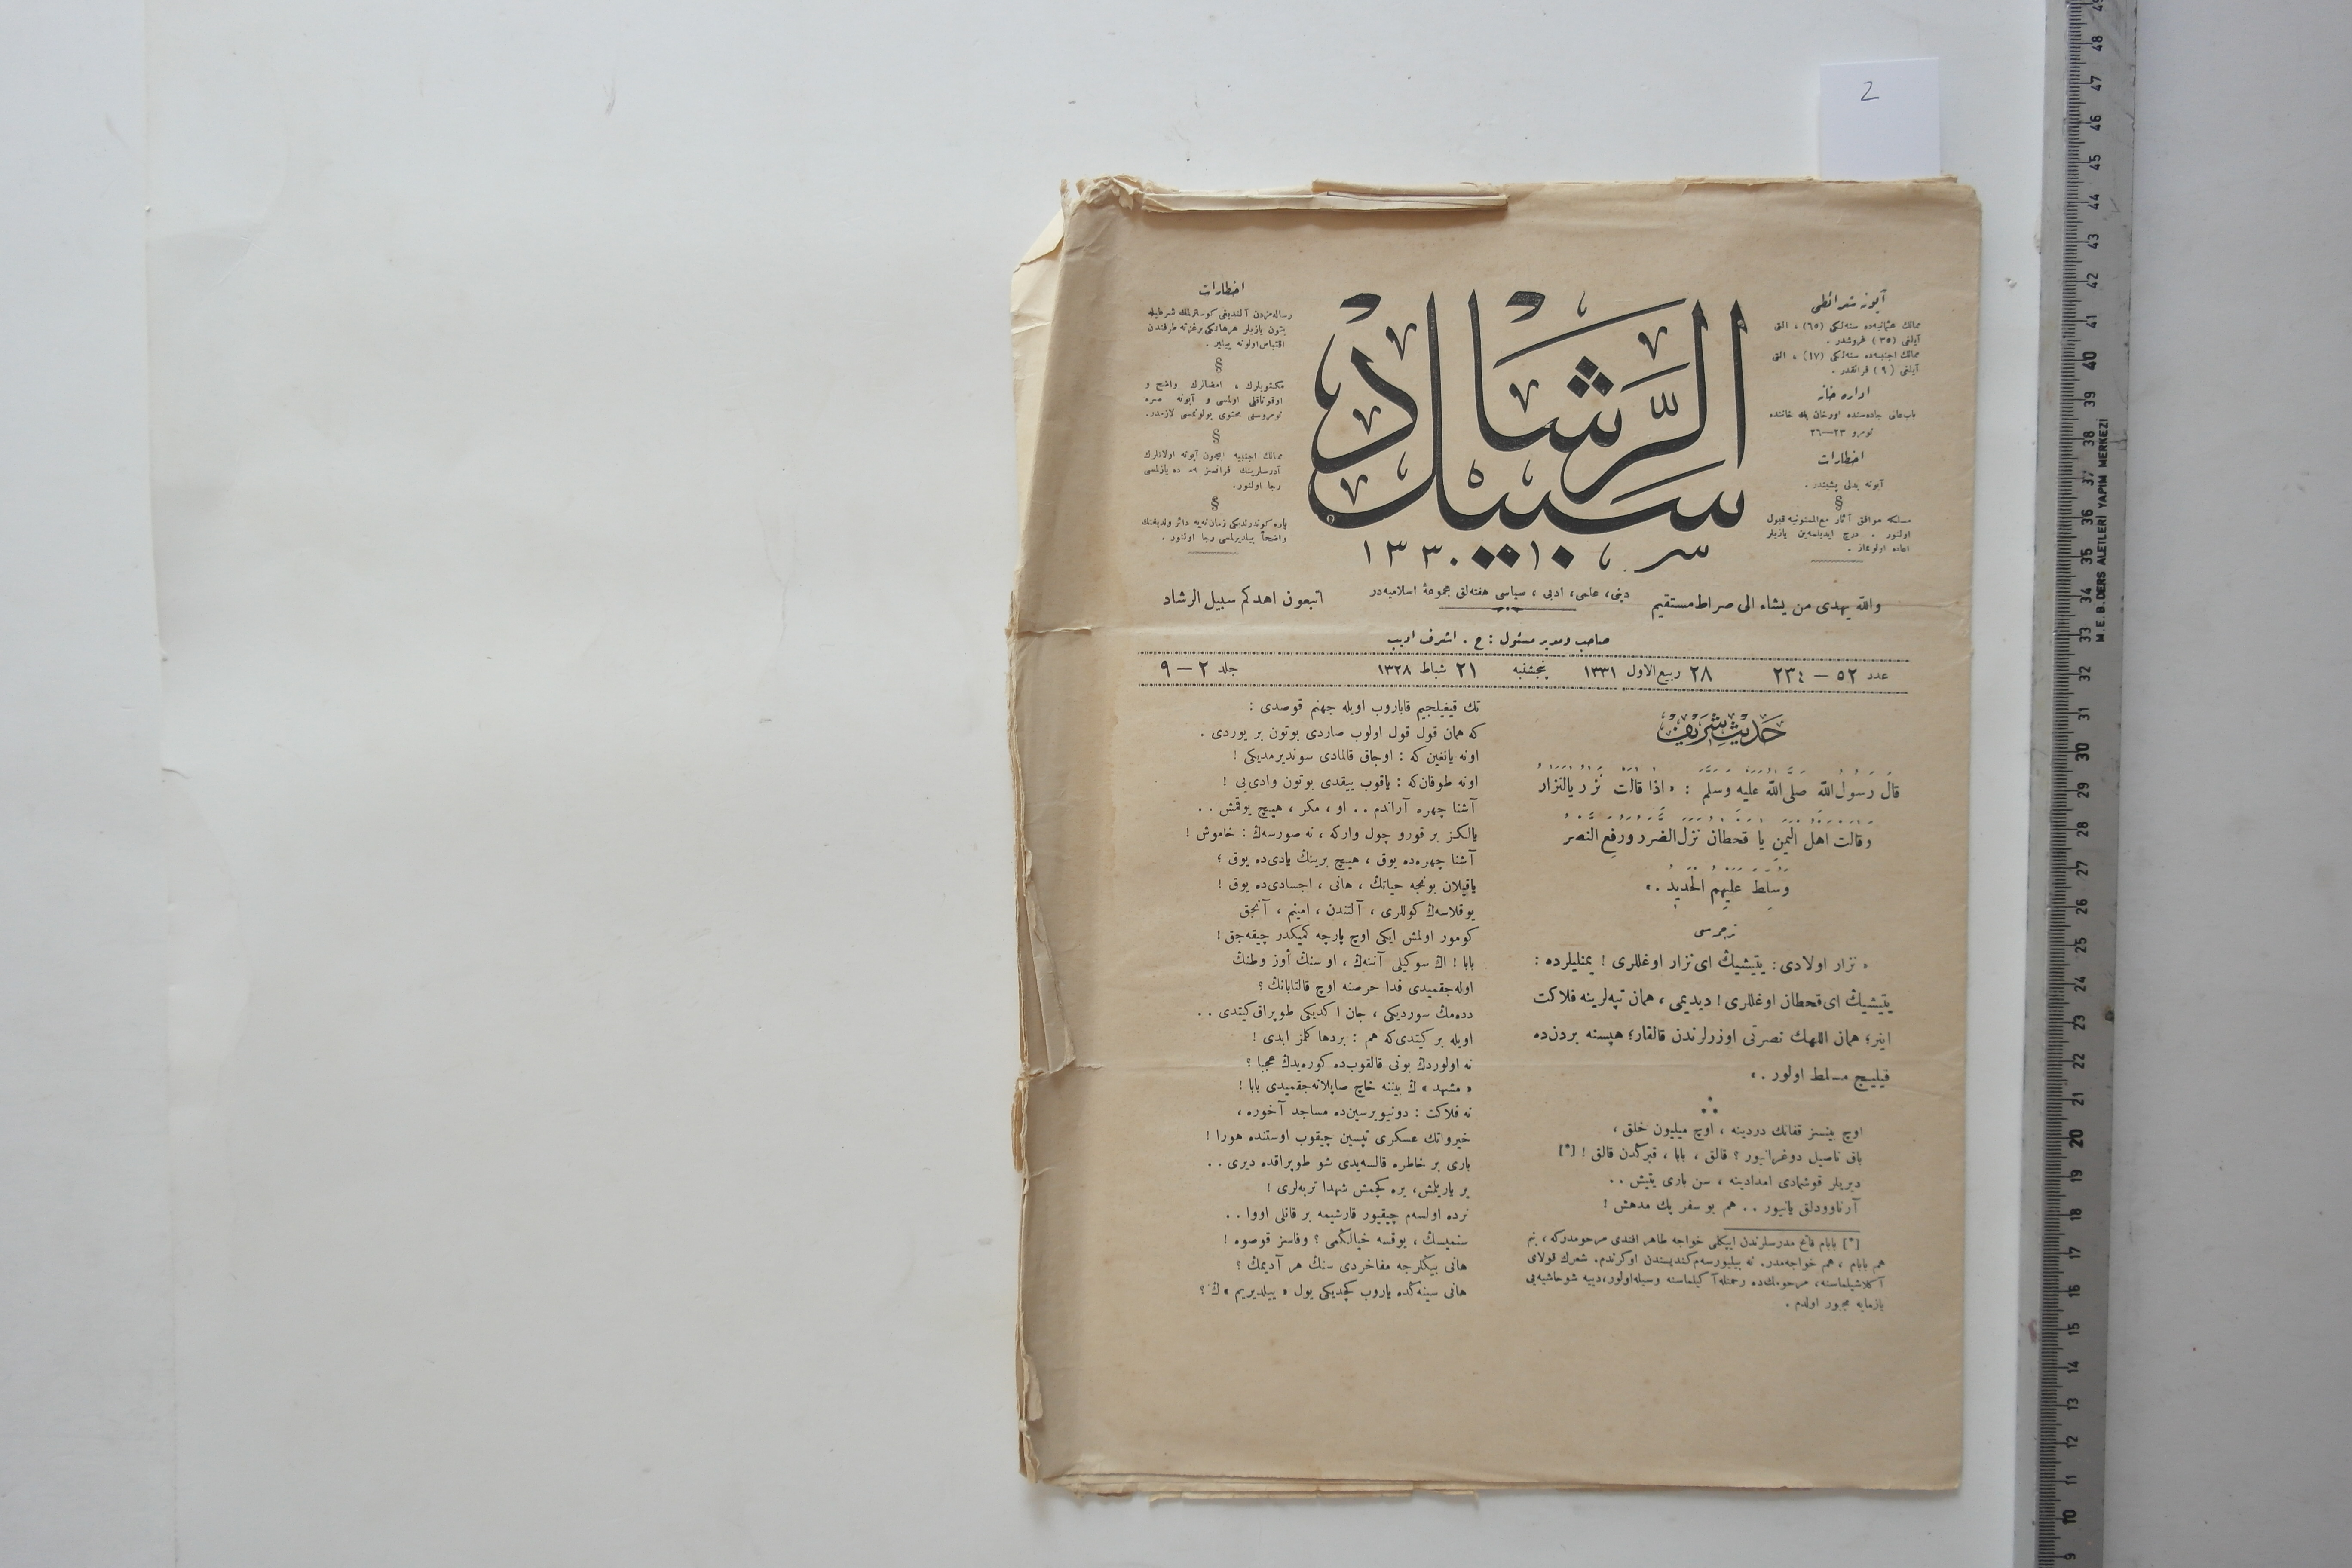 2
آبونه شرائطی
ممالك عثمانیه‌ده سنه‌لكی (٦٥) ، التی
آیلغی (٣٥) غروشدر .
ممالك اجنبیه‌ده سنه‌لكی (١٧) ، التی
آیلغی (٩) فرانقدر .
اداره خانه
باب عالی جاده‌سنده اورخان بك خاننده
نومرو ٢٣—٢٦
اخطارات
آبونه بدلی پشیندر .
§
مسلكه موافق آثار مع الممنونیه قبول
اولنور . درج ایدیلمه‌ین یازیلر
اعاده اولونماز .
سبیل الرشاد
سر
١٣٣٠
اخطارات
رساله‌مزدن آلندیغی كوسترلمك شرطیله
بتون یازیلر هرهانكی برغزته طرفندن
اقتباس اولونه بیلیر .
§
مكتوبلرك ، امضالرك واضح و
اوقوناقلی اولمسی و آبونه صره
نومروسنی محتوی بولونمسی لازمدر.
§
ممالك اجنبیه ایچون آبونه اولانلرك
آدرسلرینك فرانسزجه ده یازلمسی
رجا اولنور.
§
پاره كوندرلدیكی زمان نه‌یه دائر ولدیغنك
واضحاً بیلدیرلمسی رجا اولنور .
والله یهدی من یشاء الی صراط مستقیم
دینی، علمی، ادبی ، سیاسی هفته‌لق مجموعهٔ اسلامیه‌در
اتبعون اهدكم سبیل الرشاد
صاحب ومدیر مسئول : ح . اشرف ادیب
عدد ٥٢ — ٢٣٤
٢٨ ربیع الاول ١٣٣١
پنجشنبه
٢١ شباط ١٣٢٨
جلد ٢ — ٩
حدیث شریف
قال رسول الله صلی الله علیه وسلم : « اذا قالت نزار یالنزار
وقالت اهل الیمن یا قحطان نزل الضرر ورفع النصر
وسلط علیهم الحدید . »
ترجمه‌سی
« نزار اولادی : یتیشیك ای نزار اوغللری ! یمنلیلرده :
یتیشیك ای قحطان اوغللری ! دیدیمی ، همان تپه‌لرینه فلاكت
اینر؛ همان اللهك نصرتی اوزرلرندن قالقار؛ هپسنه بردن‌ده
قیلیج مسلط اولور . »
اوچ بینسز قفانك دردینه ، اوچ میلیون خلق ،
باق ناصیل دوغرانیور ؟ قالق ، بابا ، قبركدن قالق ! [*]
دیریلر قوشمادی امدادینه ، سن باری یتیش . .
آرناوودلق یانیور . . هم بو سفر پك مدهش !
[*] بابام فاتح مدرسلرندن ایپكلی خواجه طاهر افندی مرحومدركه ، بنم
هم بابام ، هم خواجه‌مدر. نه بیلیورسه‌م كندیسندن اوكرندم. شعرك قولای
آكلاشیلماسنه، مرحومك‌ده رحمتله آكیلماسنه وسیله اولور،دییه شوحاشیه‌یی
یازمایه مجبور اولدم .
تك قیغیلجیم قاباروب اویله جهنم قوصدی :
كه همان قول قول اولوب صاردی بوتون بر یوردی .
اونه یانغین كه : اوجاق قالمادی سوندیرمدیكی !
اونه طوفان كه : یاقوب ییقدی بوتون وادی‌یی !
آشنا چهره آراندم . . او ، مكر ، هیچ یوقمش . .
یالكز بر قورو چول واركه ، نه صورسه‌ك : خاموش !
آشنا چهره‌ده یوق ، هیچ برینك یادی‌ده یوق ؛
یاقیلان بونجه حیاتك ، هانی ، اجسادی‌ده یوق !
یوقلاسه‌ك كوللری ، آلتندن ، امینم ، آنجق
كومور اولمش ایكی اوچ پارچه كمیكدر چیقه‌جق !
بابا ! اك سوكیلی آننه‌ك ، او سنك أوز وطنك
اوله‌جقمیدی فدا حرصنه اوچ قالتابانك ؟
دده‌مك سوردیكی ، جان اكدیكی طوپراق كیتدی . .
اویله بر كیتدی كه هم : بردها كلمز ابدی !
نه اولوردك بونی قالقوب‌ده كوره‌یدك عجبا ؟
« مشهد » ك بیننه خاچ صاپلانه‌جقمیدی بابا !
نه فلاكت : دونیویرسین‌ده مساجد آخوره ،
خیرواتك عسكری تپسین چیقوب اوستنده هورا !
باری بر خاطره قالسه‌یدی شو طوپراقده دیری . .
یر یاریلمش، یره كچمش شهدا تربه‌لری !
نرده اولسه‌م چیقیور قارشیمه بر قانلی اووا . .
سنمیسك ، یوقسه خیالكمی ؟ وفاسز قوصوه !
هانی بیكلرجه مفاخردی سنك هر آدیمك ؟
هانی سینه‌كده یاروب كچدیكی یول « ییلدیریم » ك ؟
M.E.B. DERS ALETLERİ YAPIM MERKEZİ
49
48
47
46
45
44
43
42
41
40
39
38
37
36
35
34
33
32
31
30
29
28
27
26
25
24
23
22
21
20
19
18
17
16
15
14
13
12
11
10
9